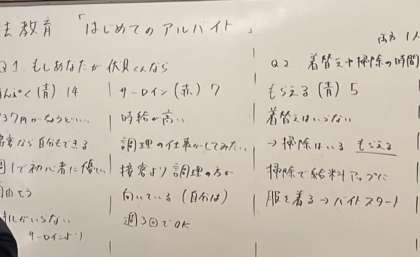 法教育 「はじめてのアルバイト」
Q1 もしあなたが 伏見くんなら
(青) 14
接客なら自分もできる
週1で初心者に優しい
サーロインより
サーロイン (赤) 7
時給が高い
調理の仕事がしてみたい
接客より 調理の方が
向いている (自分は)
週3回でOK
1人
Q2 着替えや掃除の時間
もらえる (青) 5
着替えはいらない
→ 掃除はいる もらえる
掃除で給料アップに
服を着る → バイトスタート